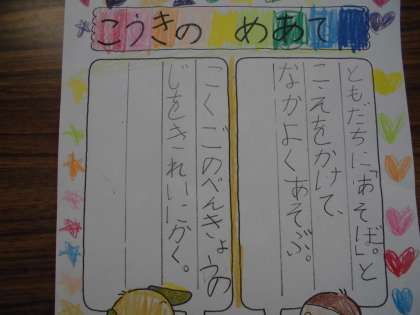 こうきの めあて
ともだちに「あそぼ」。と
こえをかけて、
なかよくあそぶ。
「こくごのべんきょうの
じをきれいにかく。